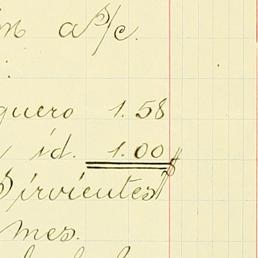 a S/c.
quero 1.58
id. 1.00 $
Sirvientes
mes.